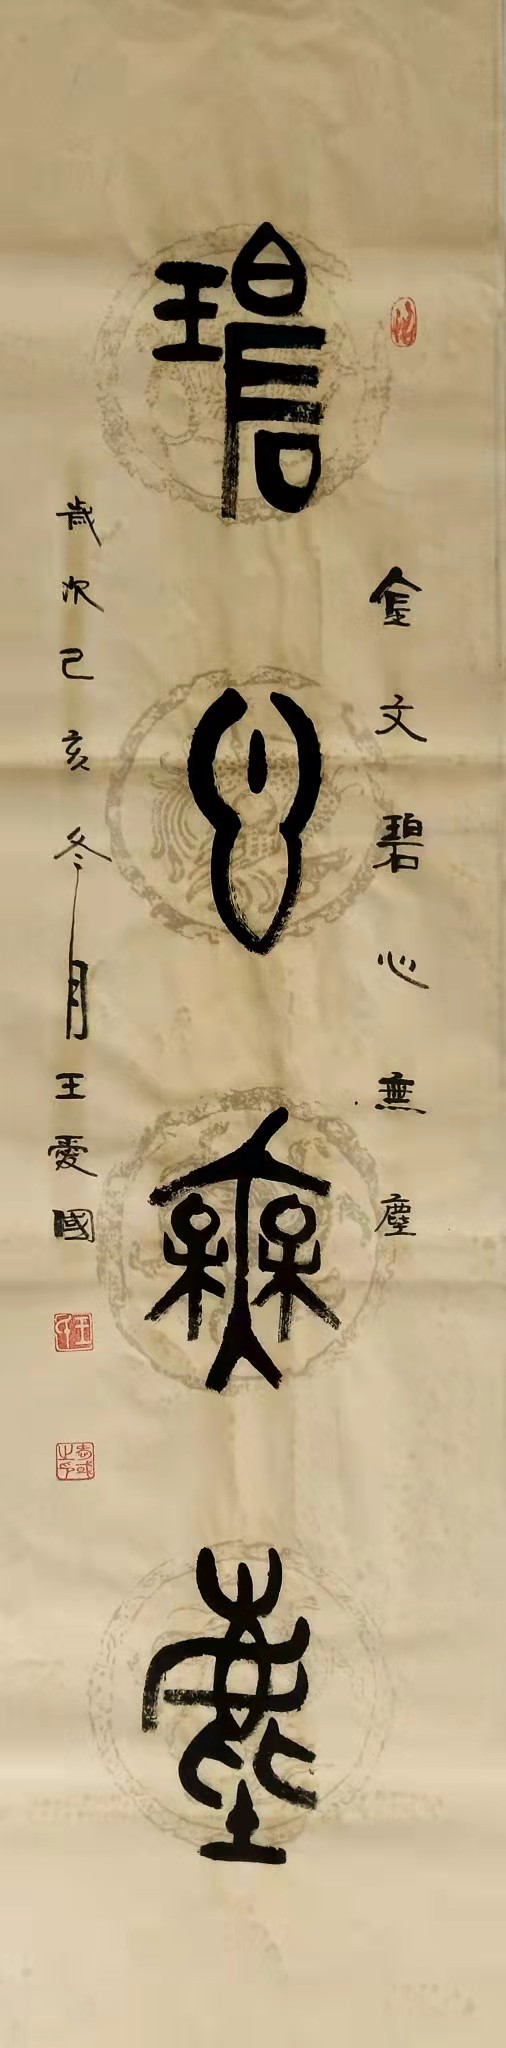 碧心無塵
金文碧心無塵
歲次己亥冬月王愛國